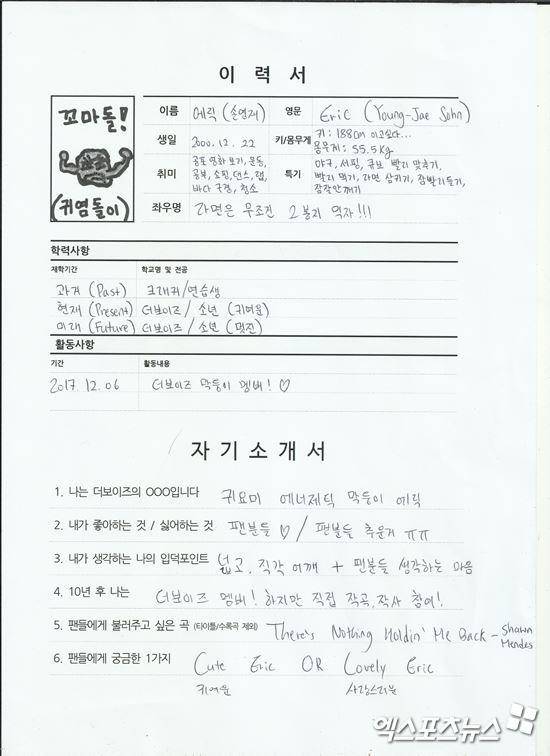 이 력 서
꼬마돌!
(귀염둥이)
이름 에릭 (손영재) 영문 Eric (Young-Jae Sohn)
생일 2000. 12. 22 키/몸무게 키: 188cm 이고싶다...
몸무게: 55.5kg
취미 공포 영화 보기, 운동,
공부, 쇼핑, 댄스, 랩,
바다 구경, 청소
특기 야구, 서핑, 큐브 빨리 맞추기,
빨리 먹기, 라면 삼키기, 잠빨리들기,
잠잘안깨기
좌우명 라면은 무조건 2봉지 먹자!!!
학력사항
재학기간 학교명 및 전공
과거 (Past) 크래커/연습생
현재 (Present) 더보이즈 / 소년 (귀여운)
미래 (Future) 더보이즈 / 소년 (멋진)
활동사항
기간 활동내용
2017. 12. 06 더보이즈 막둥이 멤버! ♡
자 기 소 개 서
1. 나는 더보이즈의 OOO입니다 귀요미 에너제틱 막둥이 에릭
2. 내가 좋아하는 것 / 싫어하는 것 팬분들 ♡ / 팬분들 추운거 ㅠㅠ
3. 내가 생각하는 나의 입덕포인트 넓고, 직각 어깨 + 팬분들 생각하는 마음
4. 10년 후 나는 더보이즈 멤버! 하지만 직접 작곡, 작사 참여!
5. 팬들에게 불러주고 싶은 곡 (타이틀/수록곡 제외) There's Nothing Holdin' Me Back - Shawn Mendes
6. 팬들에게 궁금한 1가지 Cute Eric OR Lovely Eric
귀여운 사랑스러운
엑스포츠뉴스